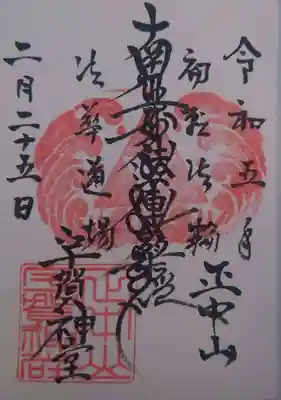 令和五年
正中山
初転法輪
南無妙法蓮華経
法華道場
宇賀神堂
二月二十五日